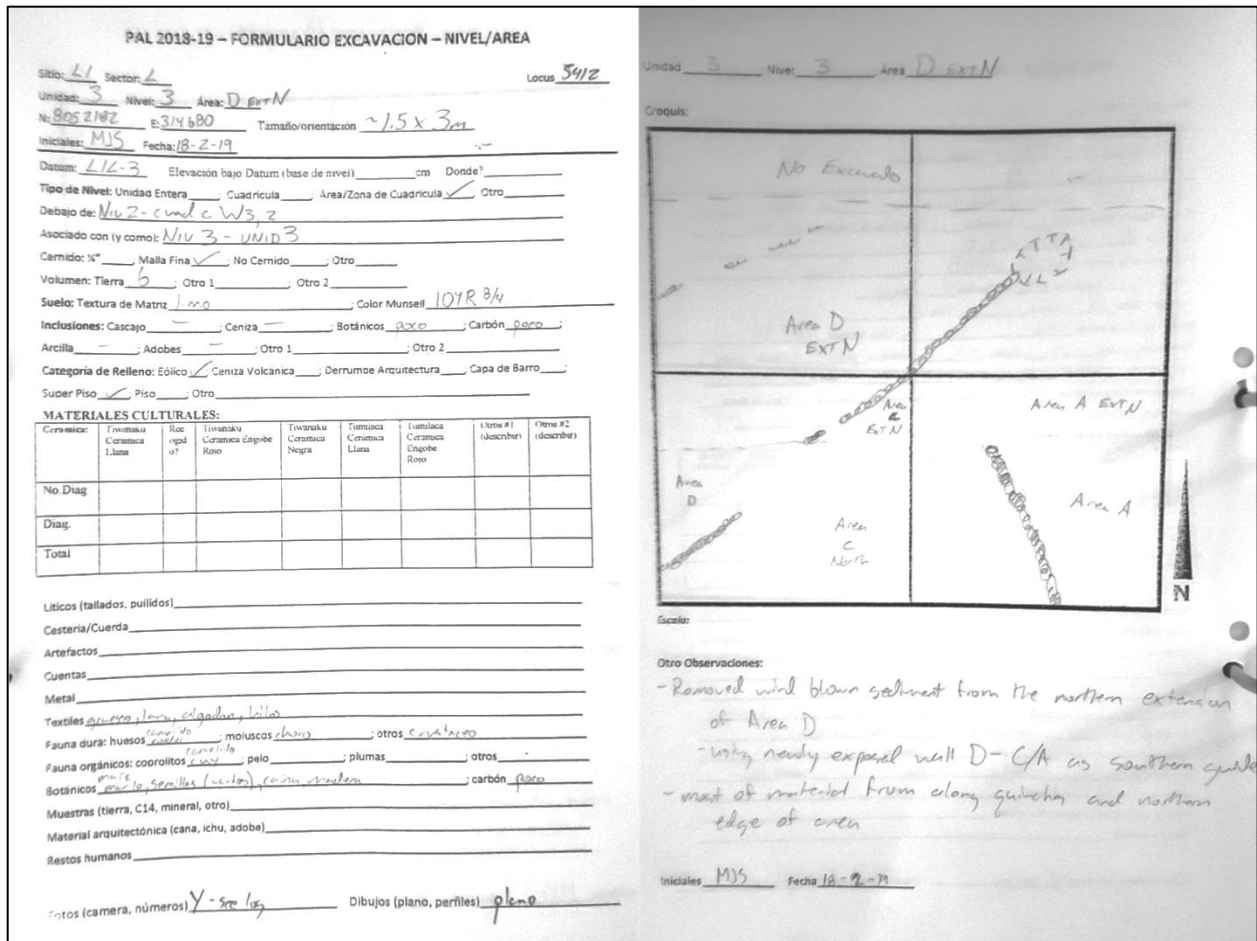 PAL 2018-19 – FORMULARIO EXCAVACION – NIVEL/AREA
Sitio: L1 Sector: L Locus 5412
Unidad: 3 Nivel: 3 Área: D EXT N
N: 8052182 E: 314680 Tamaño/orientación ~1.5 x 3m
Iniciales: MJS Fecha: 18-2-19
Datum: L1L-3 Elevación bajo Datum (base de nivel) cm Donde?
Tipo de Nivel: Unidad Entera ; Cuadricula ; Área/Zona de Cuadricula ✓ Otro
Debajo de: Niv 2 - cuad c W3, 2
Asociado con (y como): NIV 3 - UNID 3
Cernido: ¼" ; Malla Fina ✓ ; No Cernido ; Otro
Volumen: Tierra 6 ; Otro 1 ; Otro 2
Suelo: Textura de Matriz limo ; Color Munsell 10YR 8/4
Inclusiones: Cascajo — ; Ceniza — ; Botánicos poco ; Carbón poco ;
Arcilla — ; Adobes — ; Otro 1 ; Otro 2
Categoría de Relleno: Eólico ✓ ; Ceniza Volcánica ; Derrumbe Arquitectura ; Capa de Barro ;
Super Piso ✓ Piso ; Otro
MATERIALES CULTURALES:
Ceramica: Tiwanaku Ceramica Llana Rec ogid o? Tiwanaku Ceramica Engobe Rojo Tiwanaku Ceramica Negra Tumilaca Cerámica Llana Tumilaca Ceramica Engobe Rojo Otros #1 (describir) Otros #2 (describir)
No.Diag
Diag.
Total
Líticos (tallados, pulidos)
Cestería/Cuerda
Artefactos
Cuentas
Metal
Textiles lana, algodon, hilos
Fauna dura: huesos camelido ; moluscos choro ; otros crustaceo
Fauna orgánicos: coprolitos camelido cuy ; pelo ; plumas ; otros
Botánicos maiz semillas madera ; carbón poco
Muestras (tierra, C14, mineral, otro)
Material arquitectónica (cana, ichu, adobe)
Restos humanos
Fotos (camera, números) Y - see log Dibujos (plano, perfiles) plano
Unidad 3 Nivel 3 Area D EXT N
Croquis:
No Excavado
Area D
EXT N
Area
C
EXT N
Area A EXT N
Area
D
Area A
Area
C
North
N
Escala:
Otro Observaciones:
- Removed wind blown sediment from the northern extension
of Area D
- using newly exposed wall D - C/A as southern guide
- most of material from along quincha and northern
edge of area
Iniciales MJS Fecha 18-2-19